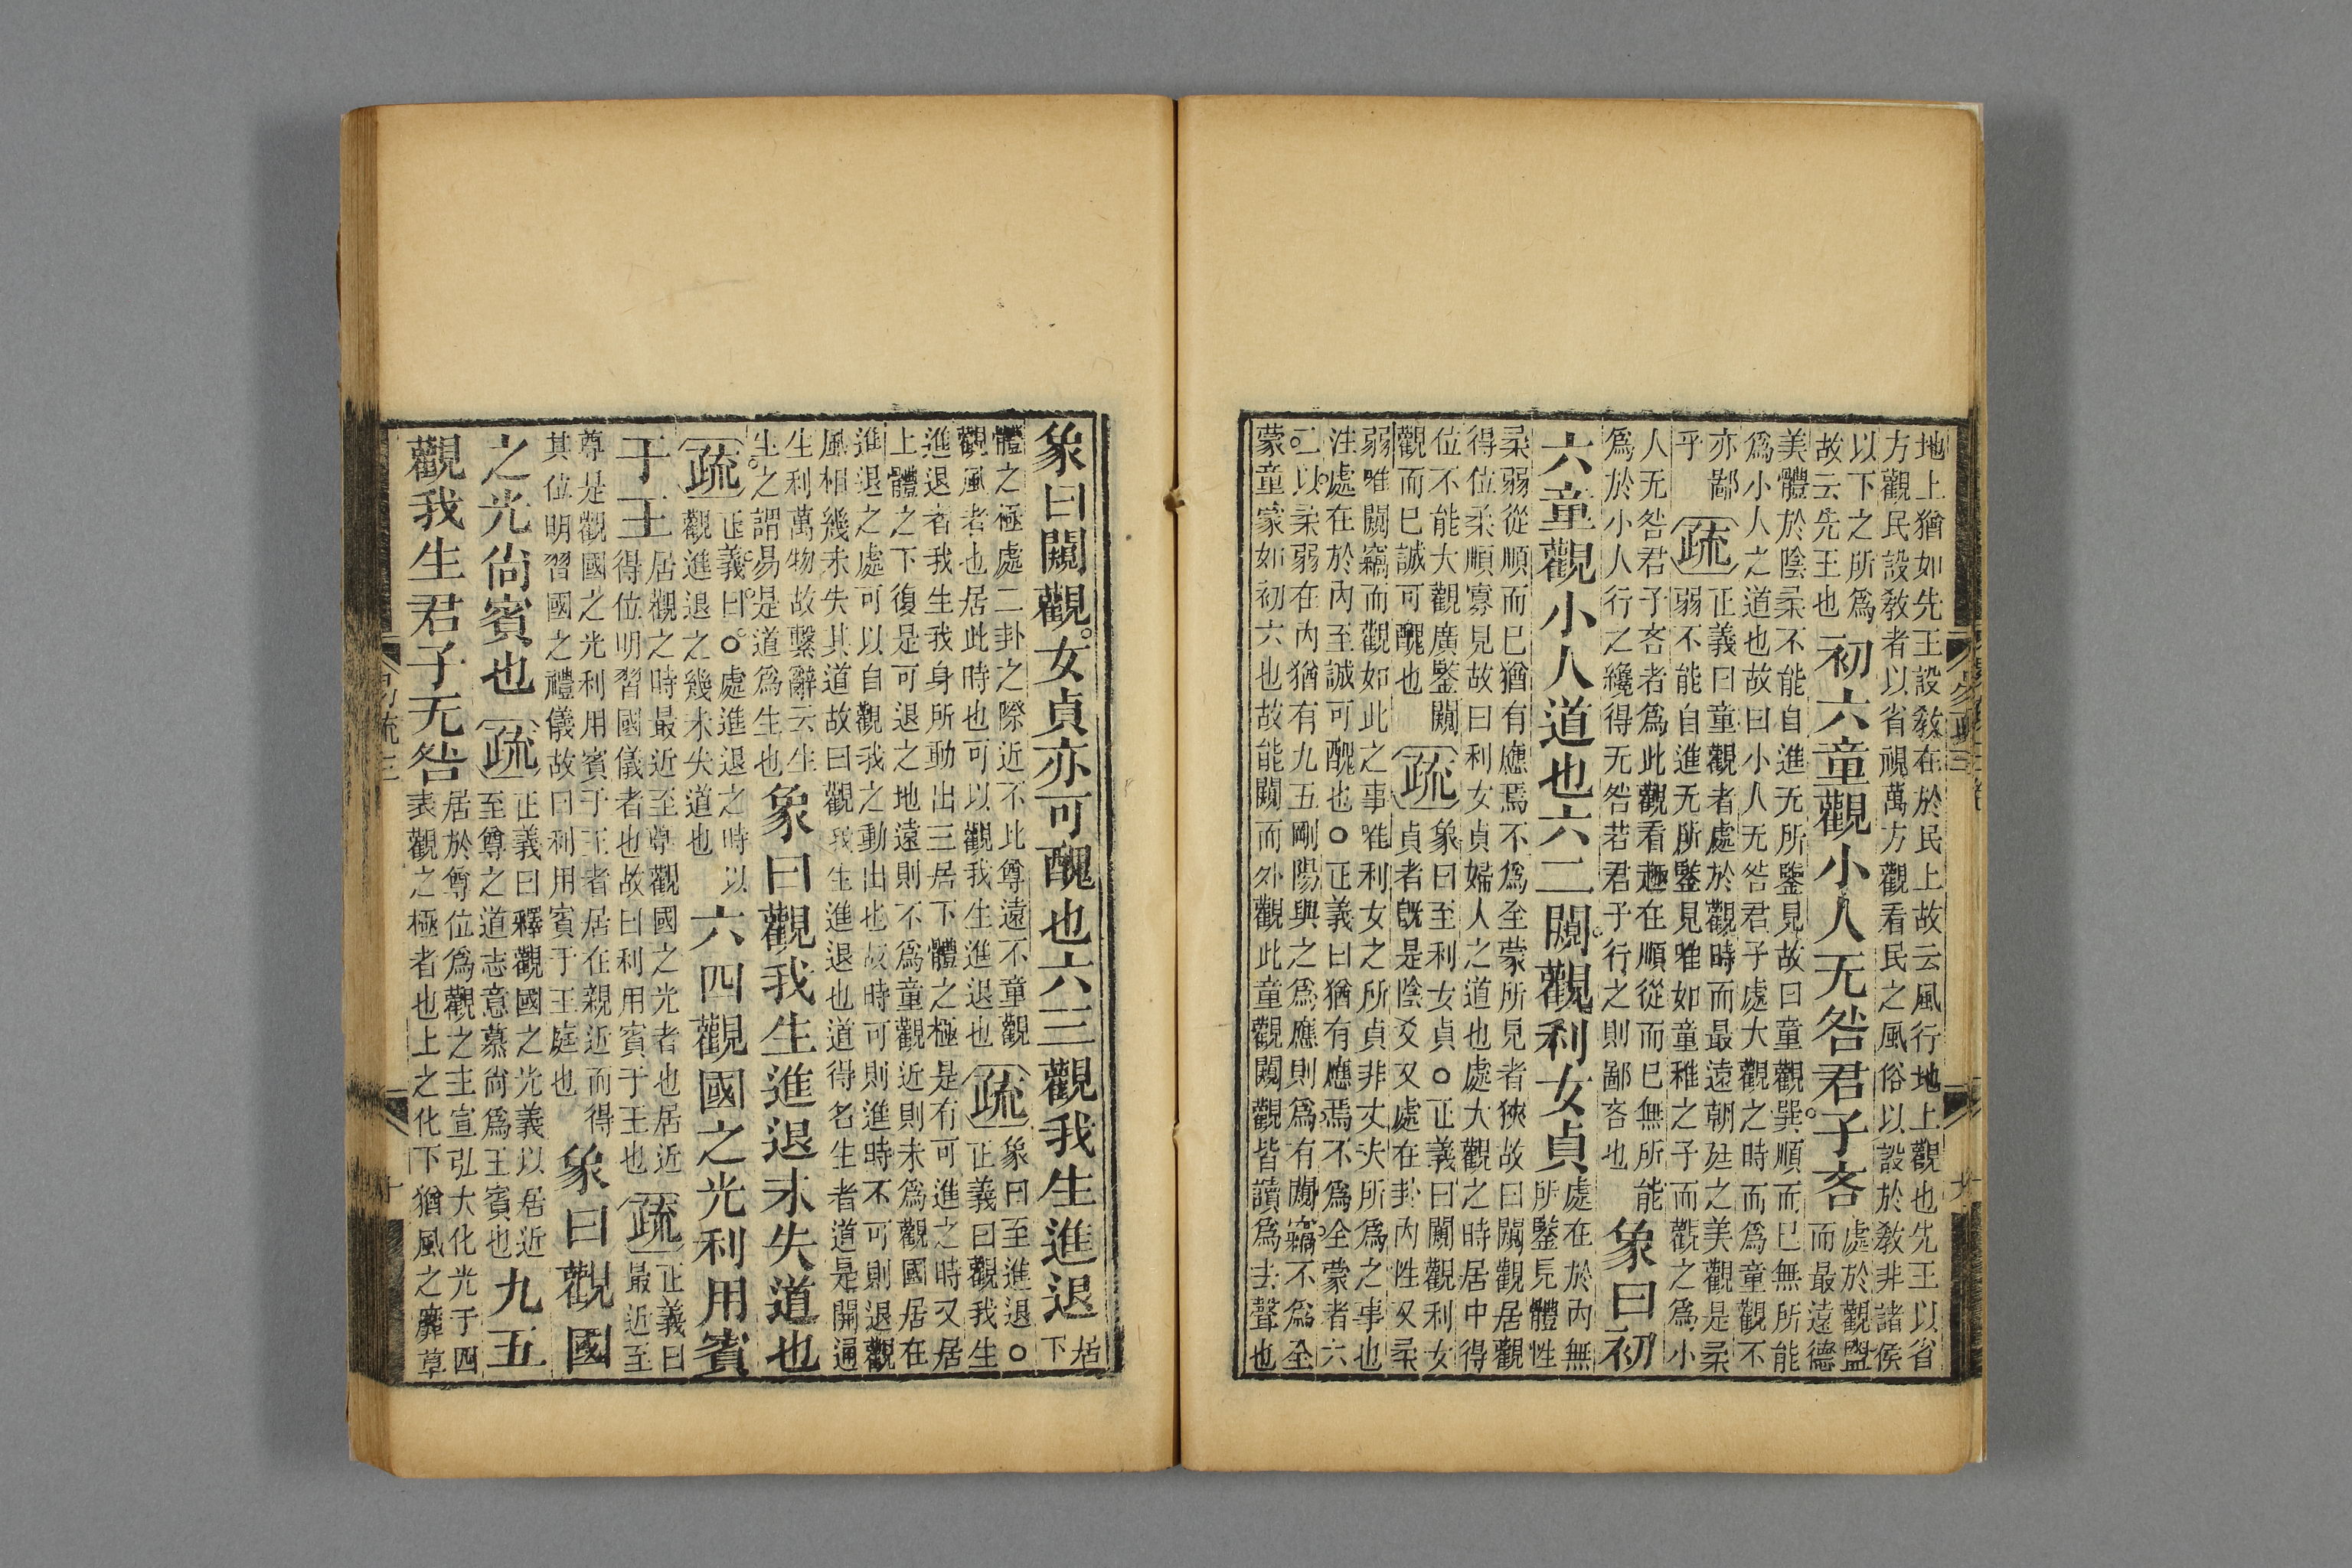 地上猶如先王設敎在於民上故云風行地上觀也先王以省
方觀民設敎者以省視萬方觀看民之風俗以設於敎非諸侯
以下之所爲
故云先王也
初六童觀小人无咎君子吝
處於觀盥
而最遠德
美體於陰柔不能自進无所鑒見故曰童觀巽順而已無所能
爲小人之道也故曰小人无咎君子處大觀之時而爲童觀不
亦鄙
乎
疏
正義曰童觀者處於觀時而最遠朝廷之美觀是柔
弱不能自進无所鑒見唯如童稚之子而觀之爲小
人无咎君子吝者爲此觀看趣在順從而已無所能
爲於小人行之纔得无咎若君子行之則鄙吝也
象曰初
六童觀小人道也六二闚觀利女貞
處在於內無
所鑒見體性
柔弱從順而已猶有應焉不爲全蒙所見者狹故曰闚觀居觀
得位柔順寡見故曰利女貞婦人之道也處大觀之時居中得
位不能大觀廣鑒闚
觀而已誠可醜也
疏
象曰至利女貞○正義曰闚觀利女
貞者旣是陰爻又處在卦內性又柔
弱唯闚竊而觀如此之事唯利女之所貞非丈夫所爲之事也
注處在於內至誠可醜也○正義曰猶有應焉不爲全蒙者六
二以柔弱在內猶有九五剛陽與之爲應則爲有闚竊不爲全
蒙童蒙如初六也故能闚而外觀此童觀闚觀皆讀爲去聲也
象曰闚觀女貞亦可醜也六三觀我生進退
居
下
體之極處二卦之際近不比尊遠不童觀
觀風者也居此時也可以觀我生進退也
疏
象曰至進退○
正義曰觀我生
進退者我生我身所動出三居下體之極是有可進之時又居
上體之下復是可退之地遠則不爲童觀近則未爲觀國居在
進退之處可以自觀我之動出也故時可則進時不可則退觀
風相幾未失其道故曰觀我生進退也道得名生者道是開通
生利萬物故繫辭云生
生之謂易是道爲生也
象曰觀我生進退未失道也
疏
正義曰○處進退之時以
觀進退之幾未失道也
六四觀國之光利用賓
于王
居觀之時最近至尊觀國之光者也居近
得位明習國儀者也故曰利用賓于王也
疏
正義曰
最近至
尊是觀國之光利用賓于王者居在親近而得
其位明習國之禮儀故曰利用賓于王庭也
象曰觀國
之光尙賓也
疏
正義曰釋觀國之光義以居近
至尊之道志意慕尙爲王賓也
九五
觀我生君子无咎
居於尊位爲觀之主宣弘大化光于四
表觀之極者也上之化下猶風之靡草